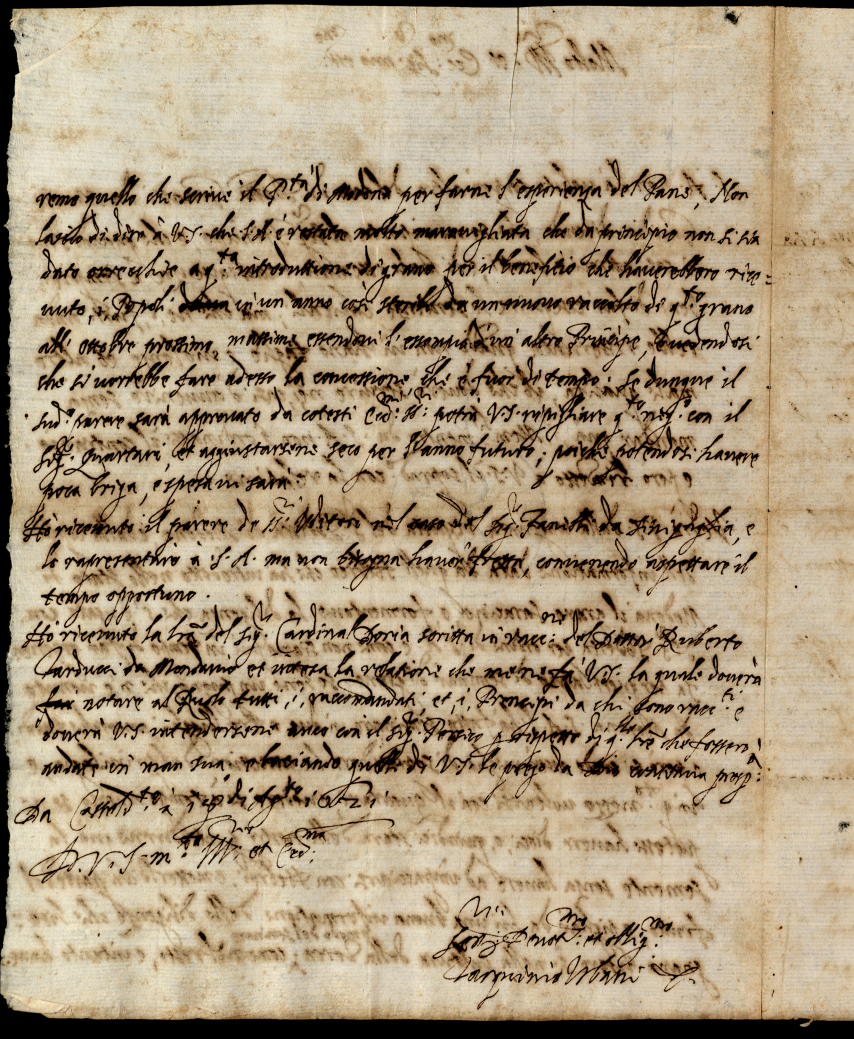 remo quello che scrive il P.ta di Modena per farne l'esperienza del Pane; Non
lascio di dire à V.S. che S.A. è restata molto maravigliata che da principio non si sia
dato orecchie a q.ta introduttione di grano per il beneficio che haverebbero rice=
vuto, i, Popoli in un anno così sterile da un nuovo raccolto di q.to grano
all' ottobre prossimo, massime essendovi l'essempio d'un altro Principe, e vedendosi
che si vorrebbe fare adesso la concessione, che è fuor di tempo; Se dunque il
sud.o parere sarà approvato da cotesti Ecc.mi SS.ri potrà V.S. ripigliare q.to neg.o con il
Sig.r Quartari et aggiustarsene seco per l'anno futuro; poiche potendosi havere
poca briga, e spesa vi sarà.
Ho ricevuto il parere de SS.ri Uditori nel caso del Sig.r da Sinigaglia, e
lo rapresentarò à S.A. ma non bisogna haver fretta, convenendo aspettare il
tempo opportuno.
Ho ricevuto la lrã del Sig.r Cardinal Doria scritta in racc.ne del Dottor Ruberto
Carducci da Mondavio et intesa la relatione che me ne fà V.S. la quale doverà
far notare al tutti, i, raccomandati, et, i, Prencipi da chi sono racc.ti e
doverà V.S. intendersene anco con il Sig.r Persico p rispetto di q.lle lrẽ che fossero
andate in man sua. e baciando quelle di V.S. le prego da Dio ogni prosp.à
Da Casteld.te à di Ag.to 1621
D.V.S. m.to Ill.re et Ecc.ma
S.re Devot.mo et oblig.mo
Tarquinio Urbani